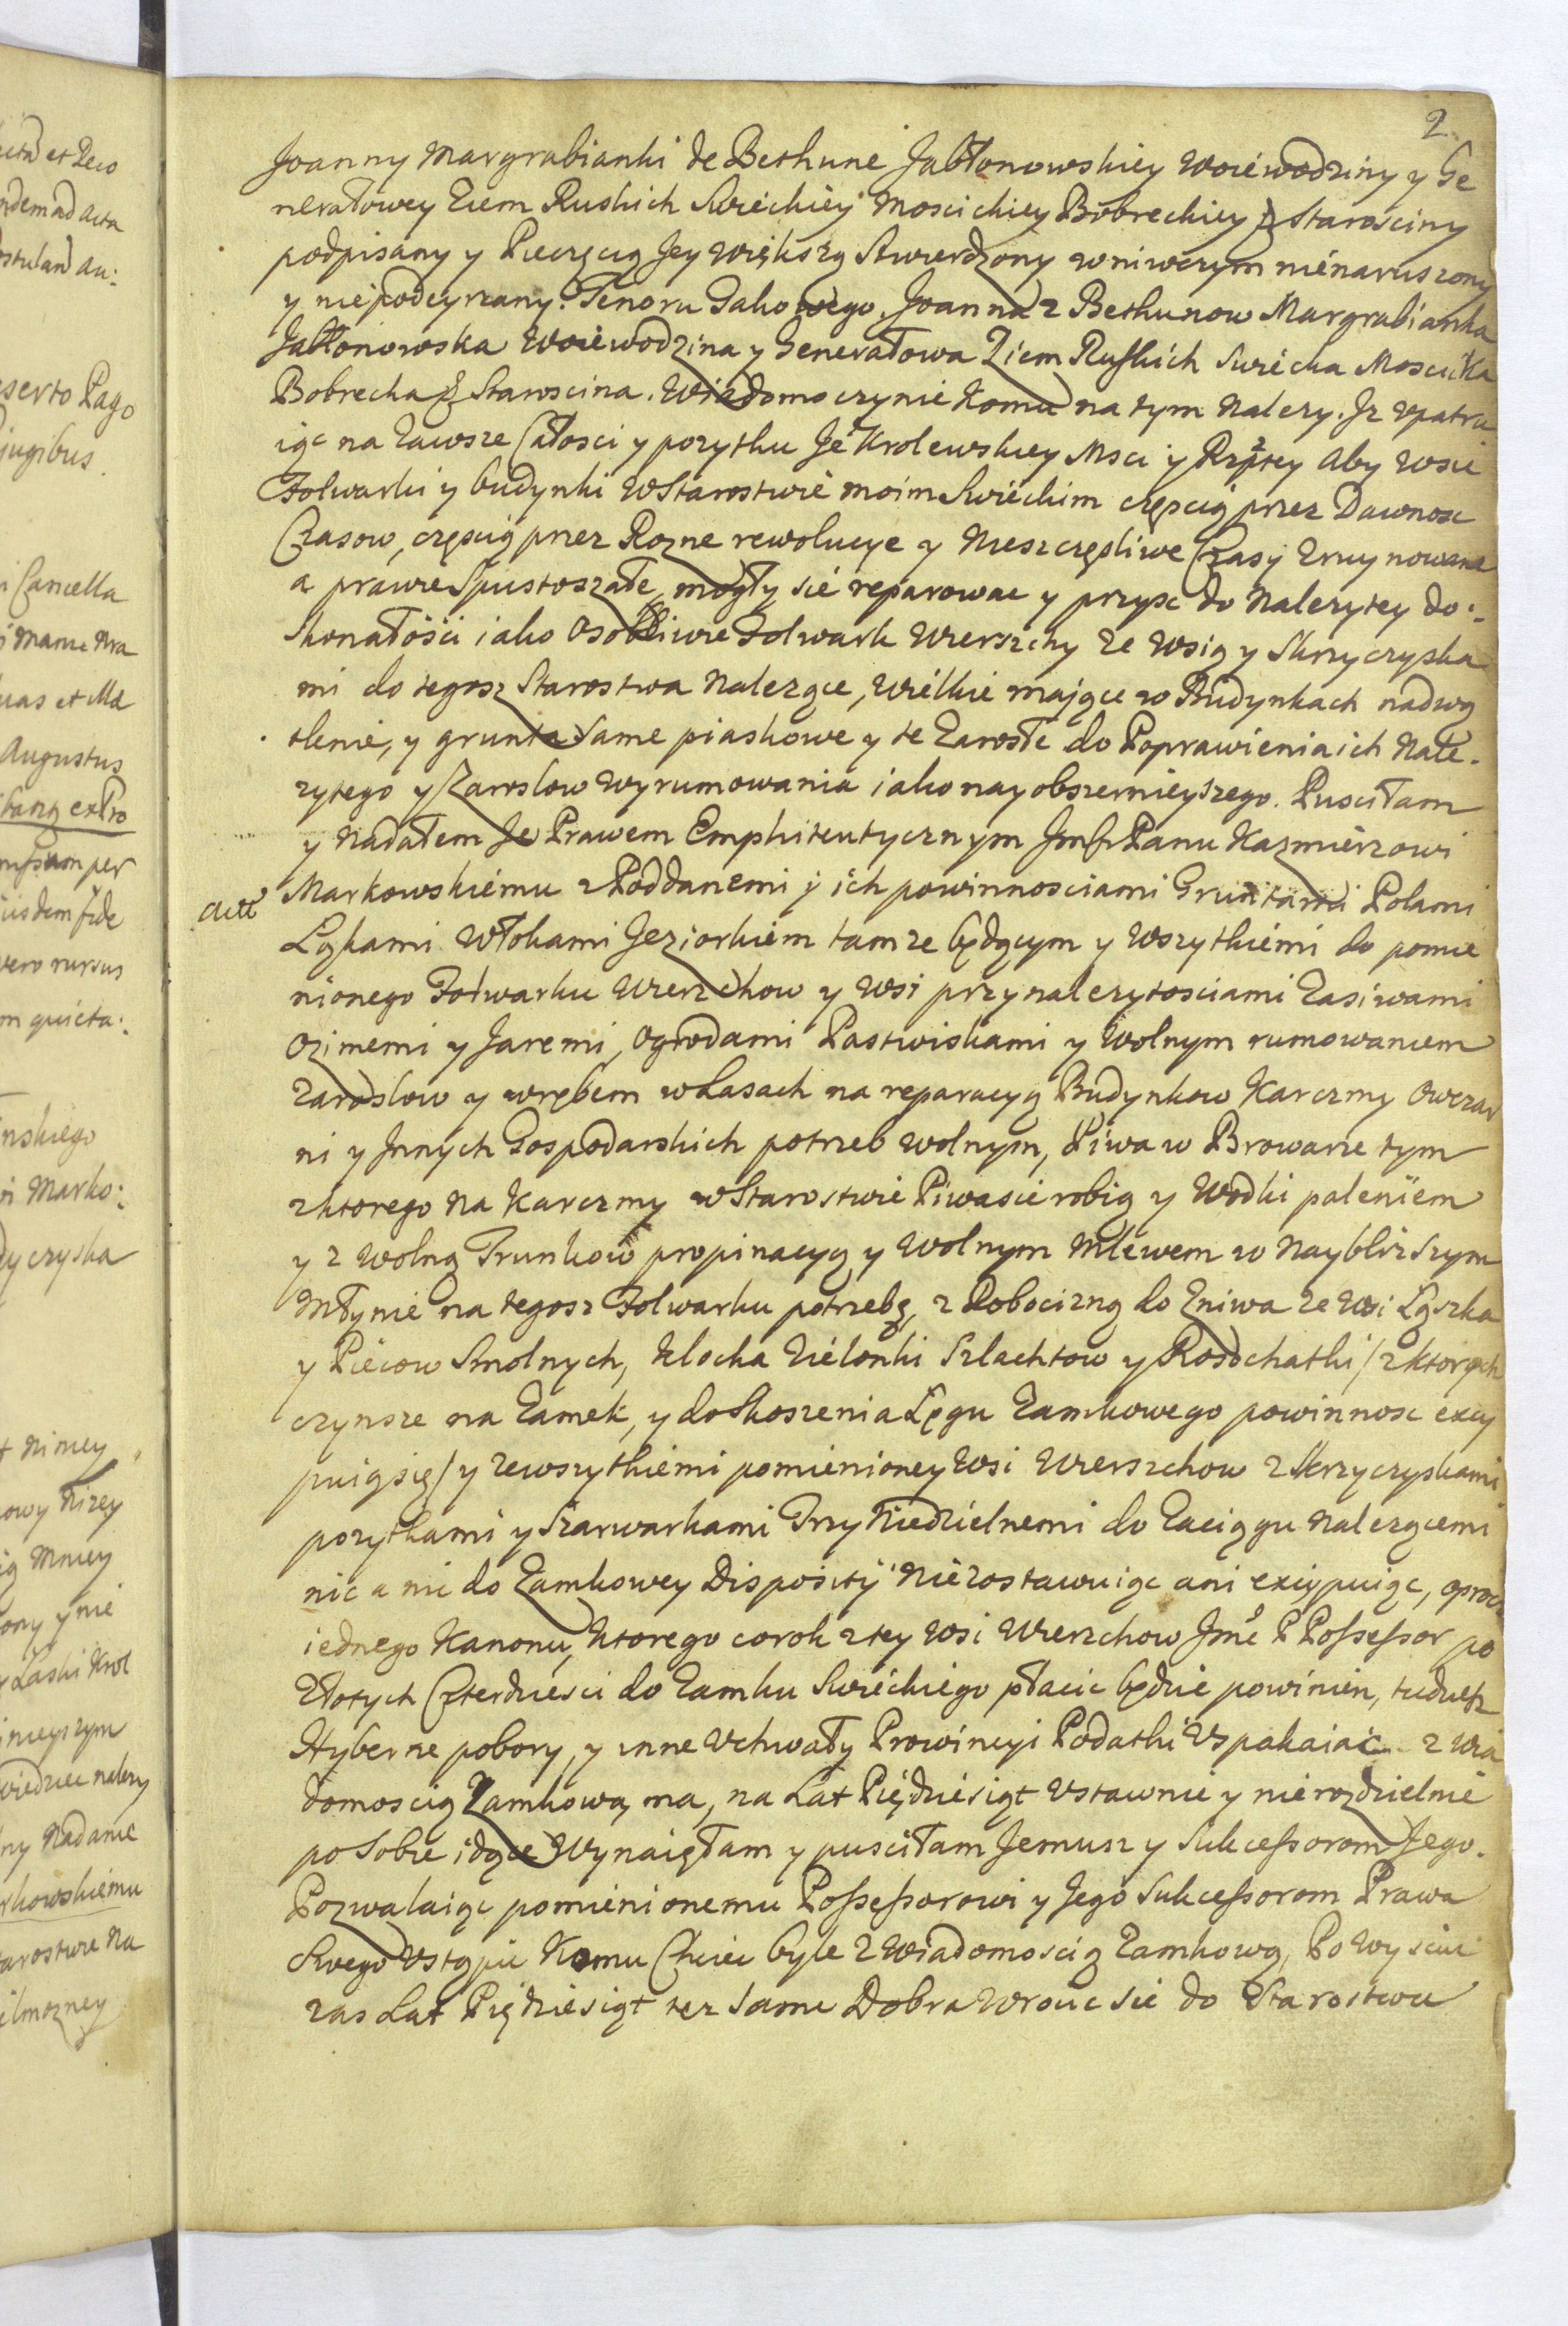 2
Joanny Margrabianki de Bethune Jabłonowskiey Woiewodziny y Ge
nerałowey Ziem Ruskich Swieckiey Moscickiey Bobreckiey & Starosciny
podpisany y Pieczęcią Jey większą stwierdzony w niwczym nienaruszony
y niepodeyrzany. Tenoru Takowego. Joanna z Bethunow Margrabianka
Jabłonowska Woiewodzina y Generałowa Ziem Ruskich Swiecka Moscicka
Bobrecka & Starościna. Wiadomo czynie komu na tym nalezy. Jz vpatru
iąc na zawsze Całosci y pozytku Je Krolewskiey Msci y Rzptey aby wsie
Folwarki y budynki w Starostwie moim Swieckim częscią przez Dawnosc
Czasow, częscią przez Rozne rewolucye y Nieszczęsliwe Czasy zruynowane
a prawie Spustoszałe, mogły sie reparowac y przysc do Nalezytey do:
skonałości iako osobliwie Folwark Wierszchy ze wsią y Skrzyczyska
mi do tegosz Starostwa Nalezące, wielkie maiące w Budynkach nadwą
tlenie, y grunta same piaskowe y te zarosłe do Poprawienia ich Nale.
zytego y Zaroslow wyrumowania iako nayobszernieyszego. Pusciłam
y Nadałem Je Prawem Emphiteutycznym Jmsci Panu Kazmierzowi
Markowskiemu z Poddanemi y ich powinnosciami Gruntami Polami
Łąkami Włokami Jeziorkiem tamze będącym y wszytkiemi do pomie
nionego Folwarku Wierzchow y wsi przynalezytosciami Zasiwami
Ozimemi y Jaremi, Ogrodami Pastwiskami y wolnym rumowaniem
zaroslow y wrębem w Lasach na reparacyą Budynkow Karczmy Owczar
ni y Jnnych Gospodarskich potrzeb wolnym, Piwa w Browarze tym
z ktorego na Karczmy w Starostwie Piwa sie robią y Wodki paleniem
y z wolną Trunkow propinacyą y wolnym Mlewem w Naybliższym
Młynie na tegosz Folwarku potrzebę, z Robocizną do żniwa ze wsi Łąszka
y Piecow Smolnych, Klocka Zielonki Szlachtow y Rosochatki / z ktorych
czynsze na Zamek, y do Skoszenia Łęgu Zamkowego powinnosc excy
puią się / y zewszytkiemi pomienioney wsi Wierszchow z Skrzyczyskami
pozytkami y szarwarkami Trzy Niedzielnemi do Zaciągu nalezącemi
nic a nic do Zamkowey Disposity niezostawuiąc ani excypuiąc, oprocz
iednego Kanonu, ktorego corok z tey wsi Wierzchow Jmć P Possessor po
Złotych Czterdziesci do Zamku Swieckiego płacic będzie powinien, tudziesz
Hyberne pobory, y inne vchwały Prowincyi Podatki vspakaiać z wia
domoscią Zamkową ma, na Lat Pięćdziesiąt vstawnie y nierozdzielnie
po sobie idące wynaięłam y pusciłam Jemusz y Sukcessorom Jego.
Pozwalaiąc pomienionemu Possessorowi y Jego Sukcessorom Prawa
swego vstąpic Komu Chciec byle z wiadomoscią Zamkową, Po wysciu
zas Lat Pięćdziesiąt tez same Dobra wrocic sie do Starostwa